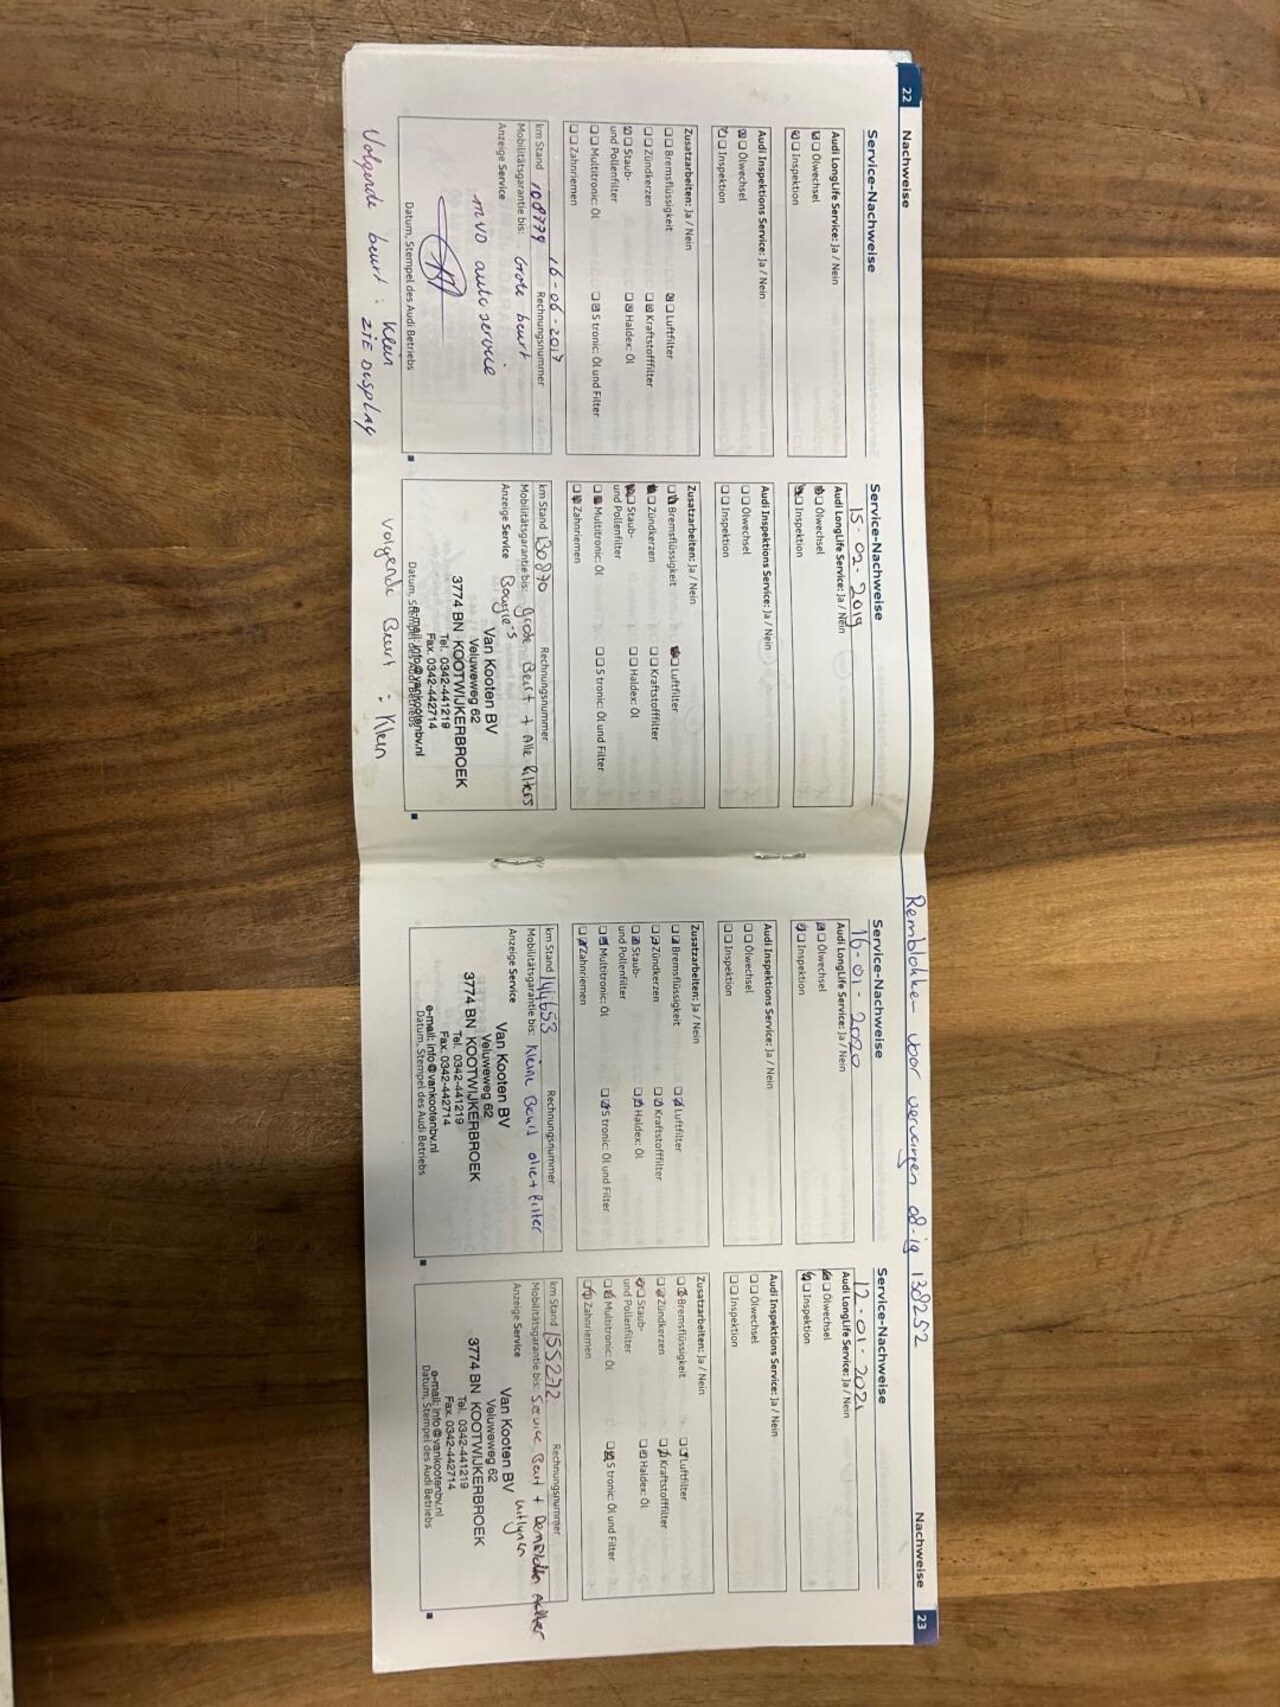 22 Nachweise
Service-Nachweise
Audi LongLife Service: Ja / Nein
Ölwechsel
Inspektion
Audi Inspektions Service: Ja / Nein
Ölwechsel
Inspektion
Zusatzarbeiten: Ja / Nein
Bremsflüssigkeit Luftfilter
Zündkerzen Kraftstofffilter
Staub- Haldex: Öl
und Pollenfilter
Multitronic: Öl S tronic: Öl und Filter
Zahnriemen
16-06-2017
km Stand 108779 Rechnungsnummer
Mobilitätsgarantie bis: Grote beurt
Anzeige Service
MVD autoservice
Datum, Stempel des Audi Betriebs
Volgende beurt : Klein
ZIE DISPLAY
Service-Nachweise
15-02-2019
Audi LongLife Service: Ja / Nein
Ölwechsel
Inspektion
Audi Inspektions Service: Ja / Nein
Ölwechsel
Inspektion
Zusatzarbeiten: Ja / Nein
Bremsflüssigkeit Luftfilter
Zündkerzen Kraftstofffilter
Staub- Haldex: Öl
und Pollenfilter
Multitronic: Öl S tronic: Öl und Filter
Zahnriemen
km Stand 130870 Rechnungsnummer
Mobilitätsgarantie bis: Grote Beurt + Alle filters
Anzeige Service Bougie's
Van Kooten BV
Veluweweg 62
3774 BN KOOTWIJKERBROEK
Tel. 0342-441219
Fax. 0342-442714
e-mail: info@vankootenbv.nl
Datum, Stempel des Audi Betriebs
Volgende Beurt : Klein
Remblokken voor vervangen 08-19 138252
Nachweise 23
Service-Nachweise
16-01-2020
Audi LongLife Service: Ja / Nein
Ölwechsel
Inspektion
Audi Inspektions Service: Ja / Nein
Ölwechsel
Inspektion
Zusatzarbeiten: Ja / Nein
Bremsflüssigkeit Luftfilter
Zündkerzen Kraftstofffilter
Staub- Haldex: Öl
und Pollenfilter
Multitronic: Öl S tronic: Öl und Filter
Zahnriemen
km Stand 144653 Rechnungsnummer
Mobilitätsgarantie bis: Kleine Beurt olie + filter
Anzeige Service
Van Kooten BV
Veluweweg 62
3774 BN KOOTWIJKERBROEK
Tel. 0342-441219
Fax. 0342-442714
e-mail: info@vankootenbv.nl
Datum, Stempel des Audi Betriebs
Service-Nachweise
12-01-2021
Audi LongLife Service: Ja / Nein
Ölwechsel
Inspektion
Audi Inspektions Service: Ja / Nein
Ölwechsel
Inspektion
Zusatzarbeiten: Ja / Nein
Bremsflüssigkeit Luftfilter
Zündkerzen Kraftstofffilter
Staub- Haldex: Öl
und Pollenfilter
Multitronic: Öl S tronic: Öl und Filter
Zahnriemen
km Stand 155272 Rechnungsnummer
Mobilitätsgarantie bis: Service Beurt + Achter
Anzeige Service
Van Kooten BV
Veluweweg 62
3774 BN KOOTWIJKERBROEK
Tel. 0342-441219
Fax. 0342-442714
e-mail: info@vankootenbv.nl
Datum, Stempel des Audi Betriebs